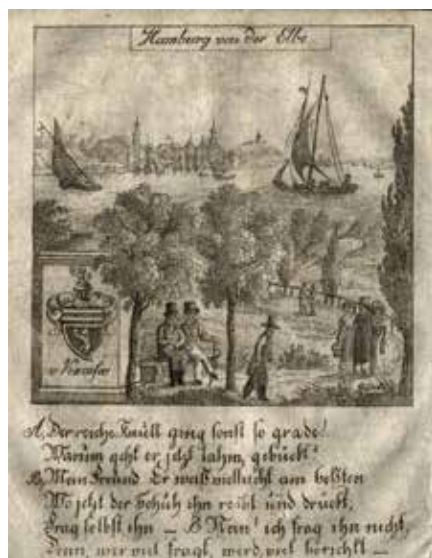 Hamburg von der Elbe
A, Der reiche Knüll ging sonst so grade!
Warum geht er jetzt lahm, gebückt?
B, Mein Freund Er weiß vielleicht am besten
Wo jetzt der Schuh ihn reibt und drückt,
Frag selbst ihn — B Nein! ich frag ihn nicht,
Denn, wer viel fragt, wird viel berichtt —